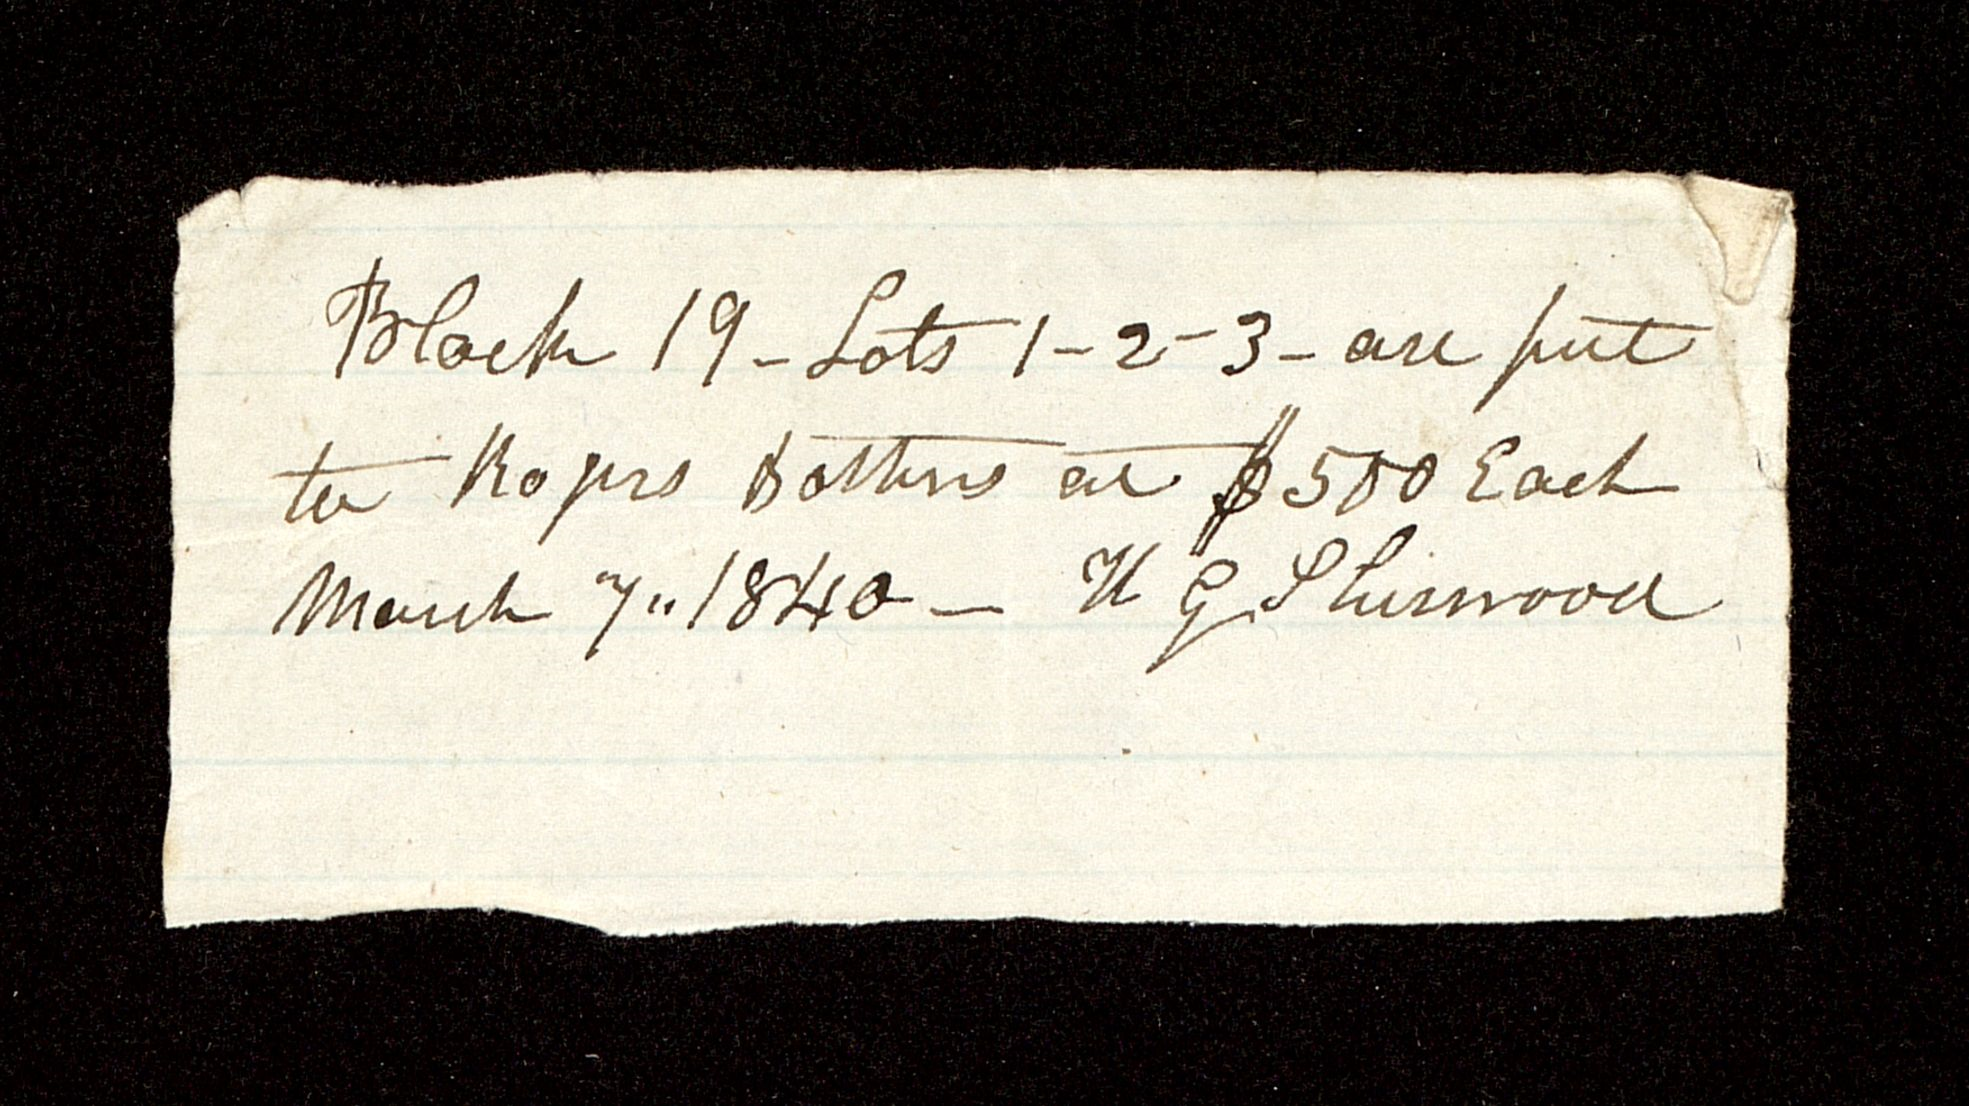 Block 19 - Lots 1 - 2 - 3 - are put
to Rogers Bothers at $500 Each
March 7" 1840 - H G Sherwood